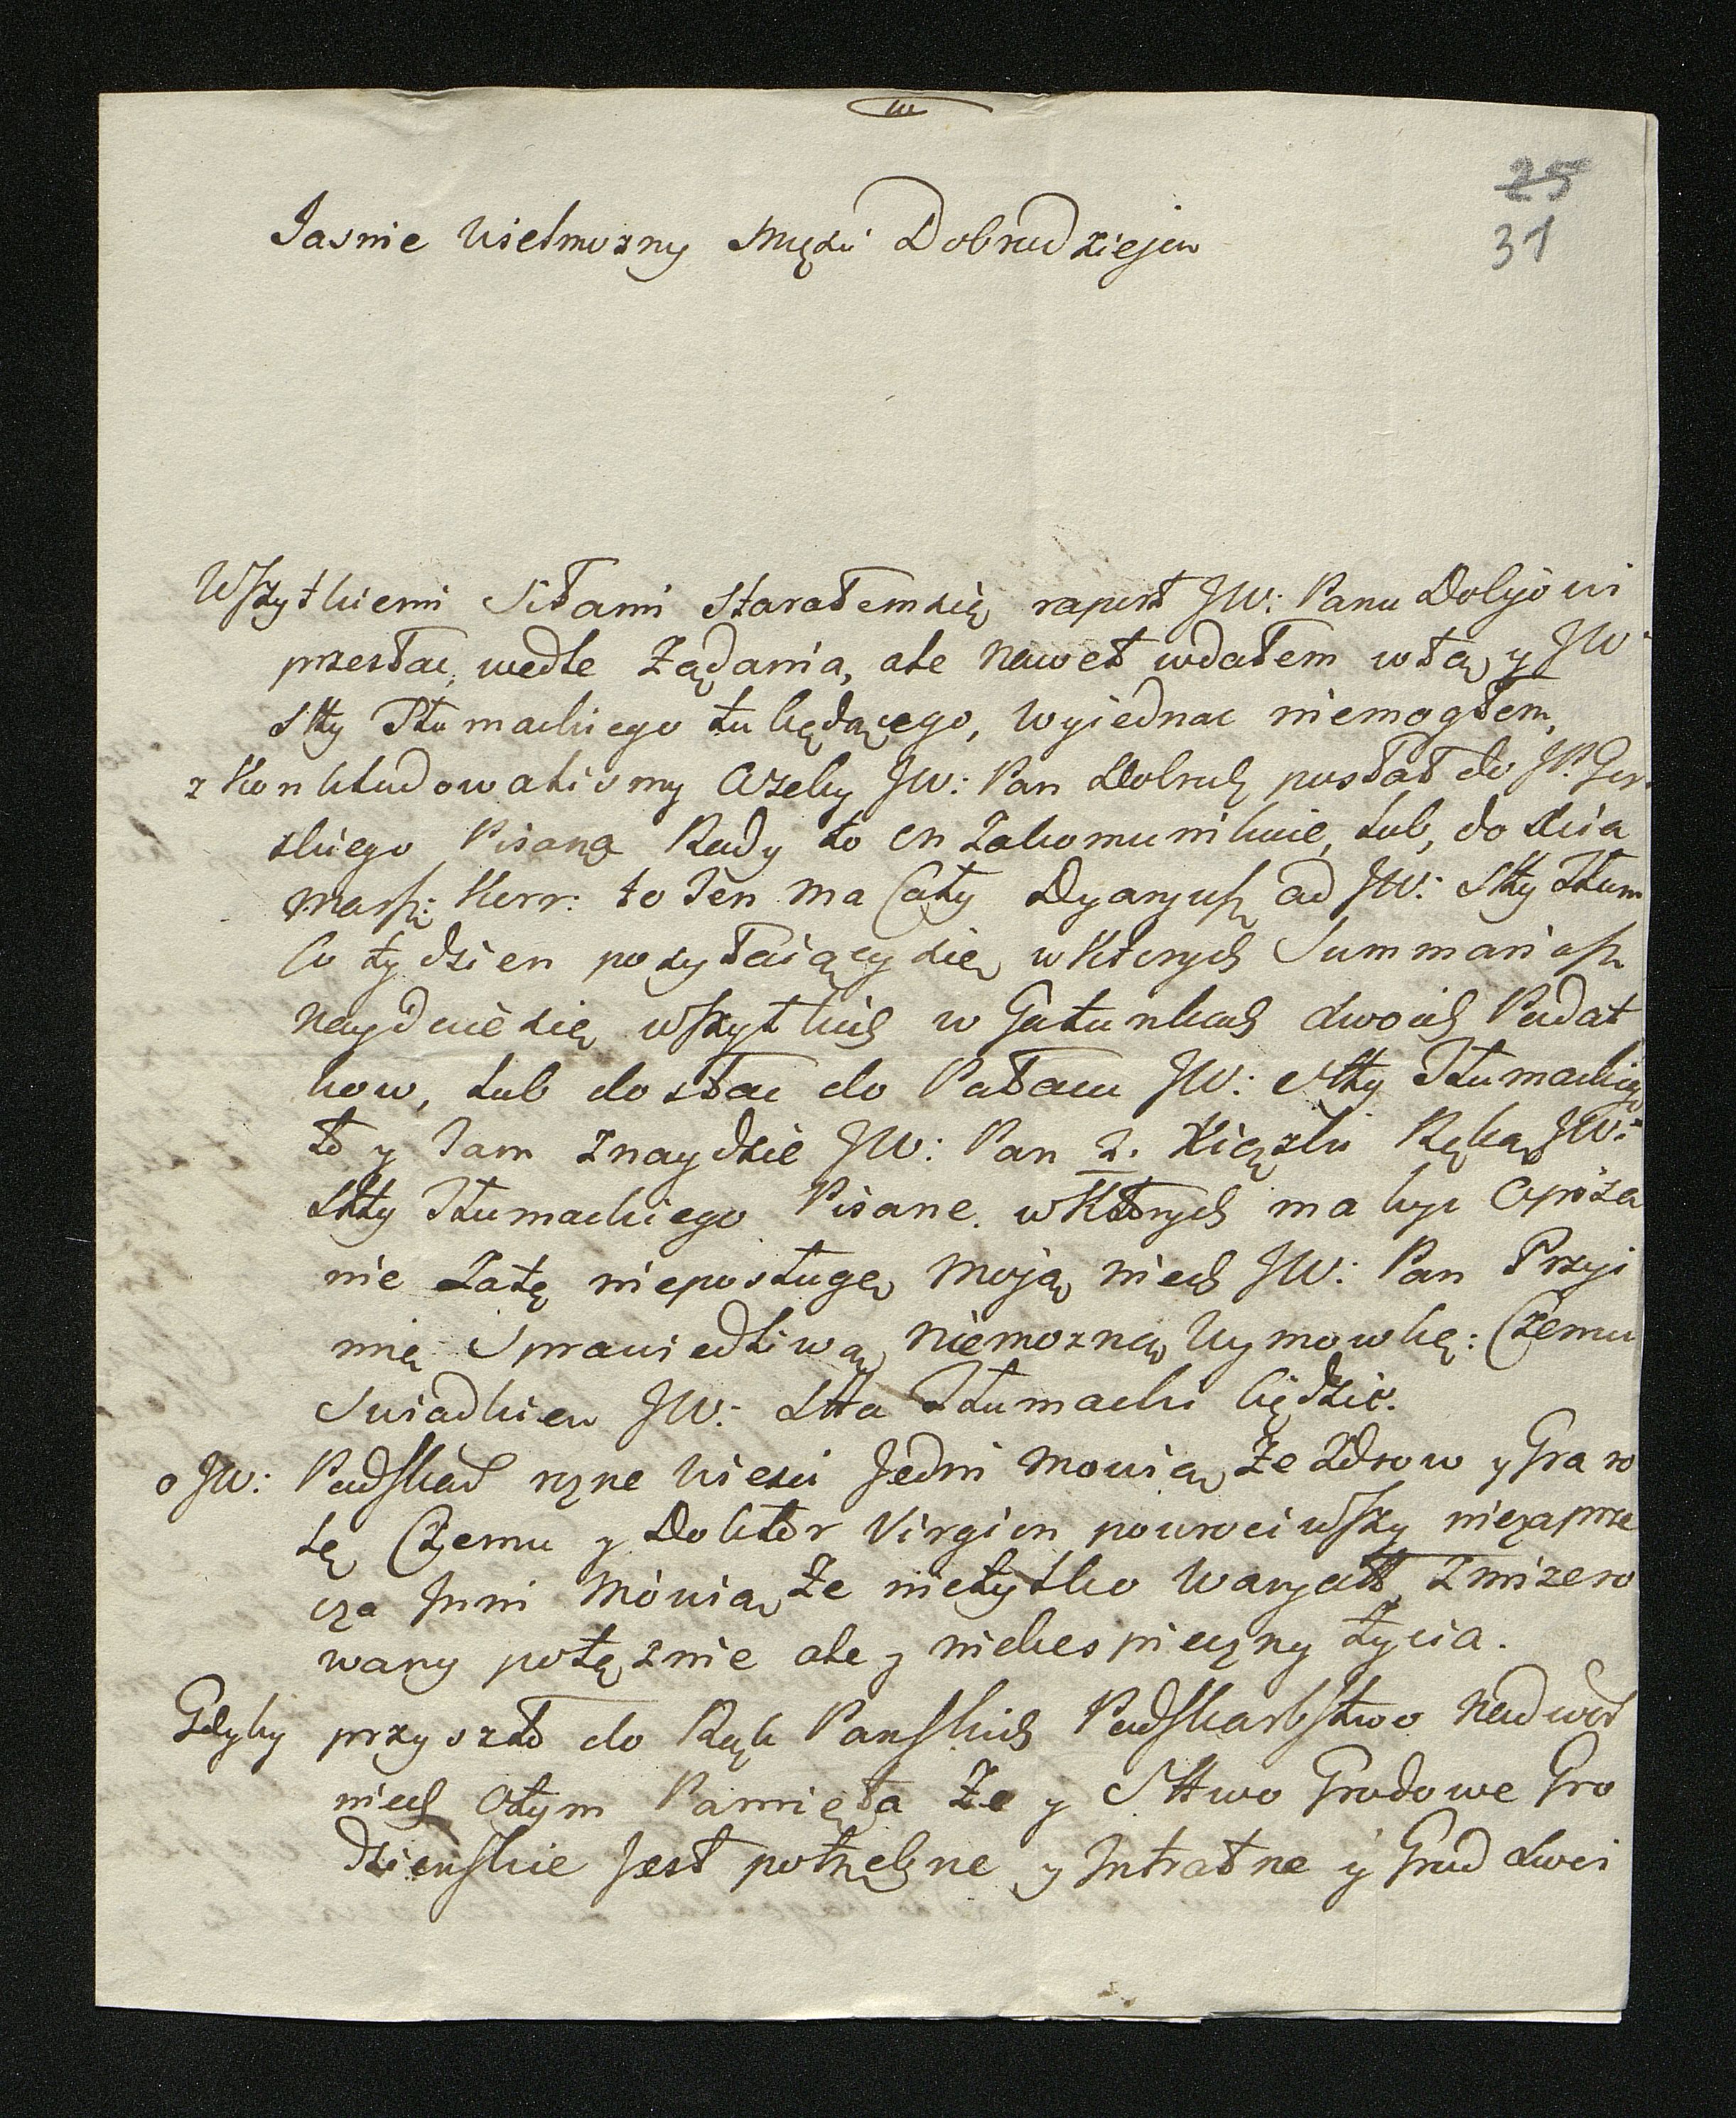 25
31
Jasnie Wielmozny Mości Dobrodzieju
Wszytkiemi Siłami Starałem się raport JW: Panu Dobrjowi
przesłac, wedle Żądania, ale nawet wdałem w tą y JW
Stty Tłumackiego tu będącego, wyiednac niemogłem,
z Konkludowalismy Ażeby JW: Pan Dobrodz posłał do JP. Gor
skiego Pisarza Rady to on Zakomunikuie, lub, do Xcia
Marsz: Kurr: to Ten ma Cały Dyaryusz od JW: Stty Tłum
Co tydzien posyłaiący się, w Ktorych Summariusz
naydzie się wszytkich w Gatunkach dwoich Podat
kow, lub dosłac do Pałacu JW: Stty Tłumackieg
to y Tam znaydzie JW: Pan 2. Xiązki Ręką JW:
Stty Tłumackiego Pisane. w Ktorych ma byc
nie Zatę nieposługę Moją niech JW: Pan Przyi
mie Sprawiedliwą niemozną Wymowkę: Czemu
Swiadkiem JW: Stta Tłumacki będzie.
o JW: Podskar rozne Wiesci Jedni Mowią Że Zdrow y Gra ro
lę Czemu y Doktor Virgion powrociwszy niezaprze
cza Inni Mówią Że nietylko Waryatt Zmizero
wany potęznie ale y niebespieczny życia.
Gdyby przyszło do Rąk Panskich Podskarbstwo Nadwor
niech Otym Pamięta Że y Sttwo Grodowe Gro
dzienskie Jest potrzebne y Intratne y Grod dwoi